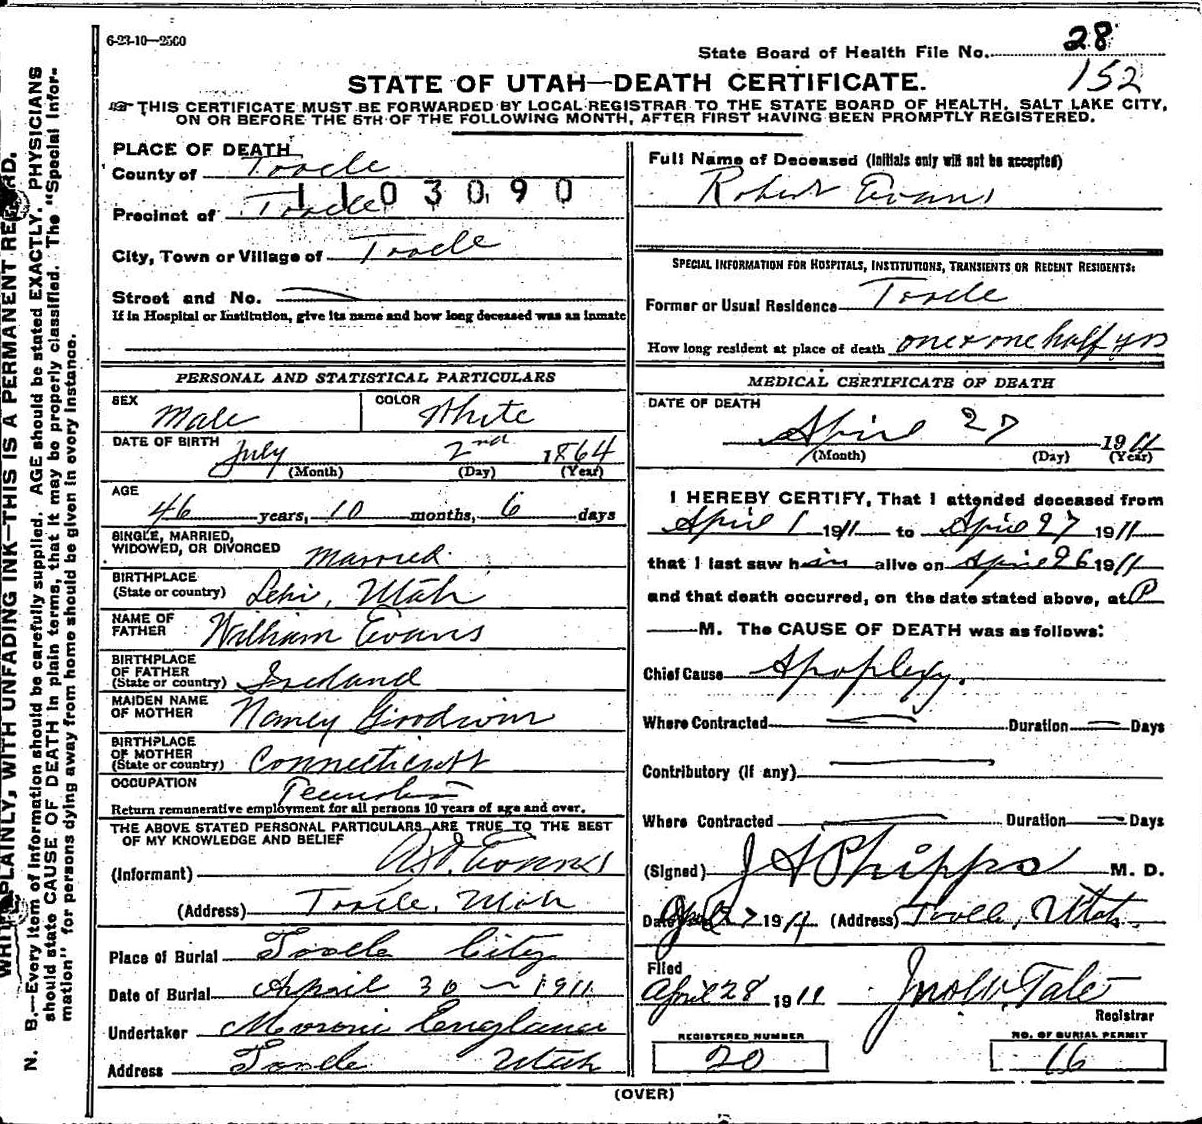 6-23-10—2500
State Board of Health File No. 28
152
STATE OF UTAH—DEATH CERTIFICATE.
THIS CERTIFICATE MUST BE FORWARDED BY LOCAL REGISTRAR TO THE STATE BOARD OF HEALTH, SALT LAKE CITY,
ON OR BEFORE THE 5TH OF THE FOLLOWING MONTH, AFTER FIRST HAVING BEEN PROMPTLY REGISTERED.
WRITE PLAINLY, WITH UNFADING INK—THIS IS A PERMANENT RECORD.
N. B.—Every item of information should be carefully supplied. AGE should be stated EXACTLY. PHYSICIANS
should state CAUSE OF DEATH in plain terms, that it may be properly classified. The "Special Infor-
mation" for persons dying away from home should be given in every instance.
PLACE OF DEATH
County of Tooele
1103090
Precinct of Tooele
City, Town or Village of Tooele
Street and No.
If in Hospital or Institution, give its name and how long deceased was an inmate
PERSONAL AND STATISTICAL PARTICULARS
SEX Male COLOR White
DATE OF BIRTH July 2nd 1864
(Month) (Day) (Year)
AGE
46 years, 10 months, 6 days
SINGLE, MARRIED,
WIDOWED, OR DIVORCED Married
BIRTHPLACE
(State or country) Lehi, Utah
NAME OF
FATHER William Evans
BIRTHPLACE
OF FATHER
(State or country) Ireland
MAIDEN NAME
OF MOTHER Nancy Goodwin
BIRTHPLACE
OF MOTHER
(State or country) Connecticutt
OCCUPATION
Return remunerative employment for all persons 10 years of age and over.
THE ABOVE STATED PERSONAL PARTICULARS ARE TRUE TO THE BEST
OF MY KNOWLEDGE AND BELIEF
(Informant) Evans
(Address) Tooele, Utah
Place of Burial Tooele City
Date of Burial April 30 – 1911
Undertaker Moroni England
Address Tooele Utah
Full Name of Deceased (Initials only will not be accepted)
Robert Evans
SPECIAL INFORMATION FOR HOSPITALS, INSTITUTIONS, TRANSIENTS OR RECENT RESIDENTS:
Former or Usual Residence Tooele
How long resident at place of death one & one half yrs
MEDICAL CERTIFICATE OF DEATH
DATE OF DEATH
April 27 1911
(Month) (Day) (Year)
I HEREBY CERTIFY, That I attended deceased from
April 1 1911 to April 27 1911
that I last saw him alive on April 26 1911
and that death occurred, on the date stated above, at P
M. The CAUSE OF DEATH was as follows:
Chief Cause Apoplexy.
Where Contracted Duration Days
Contributory (if any)
Where Contracted Duration Days
(Signed) J A Phipps M. D.
Date Apr 27 1911 (Address) Tooele, Utah
Filed
April 28 1911 Jno W. Tate
Registrar
REGISTERED NUMBER NO. OF BURIAL PERMIT
20 16
(OVER)